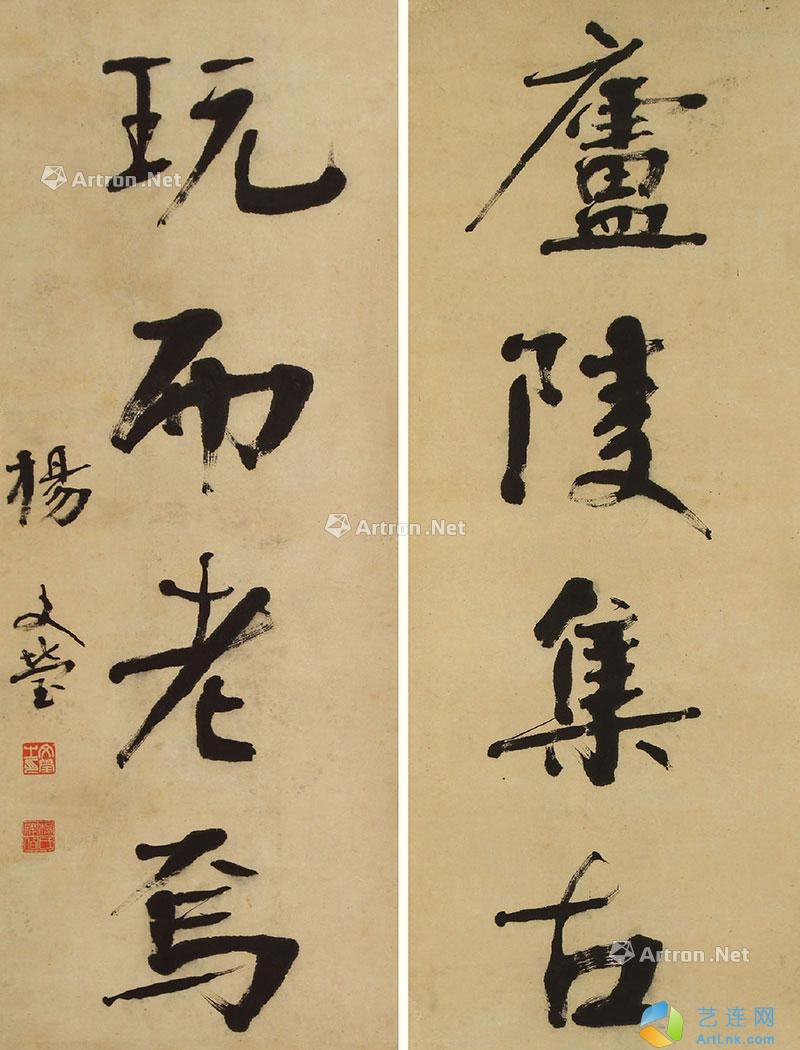 廬陵集古
玩而老焉
楊文瑩
Artron.Net
Artron.Net
Artron.Net
艺连网
ArtLnk.com